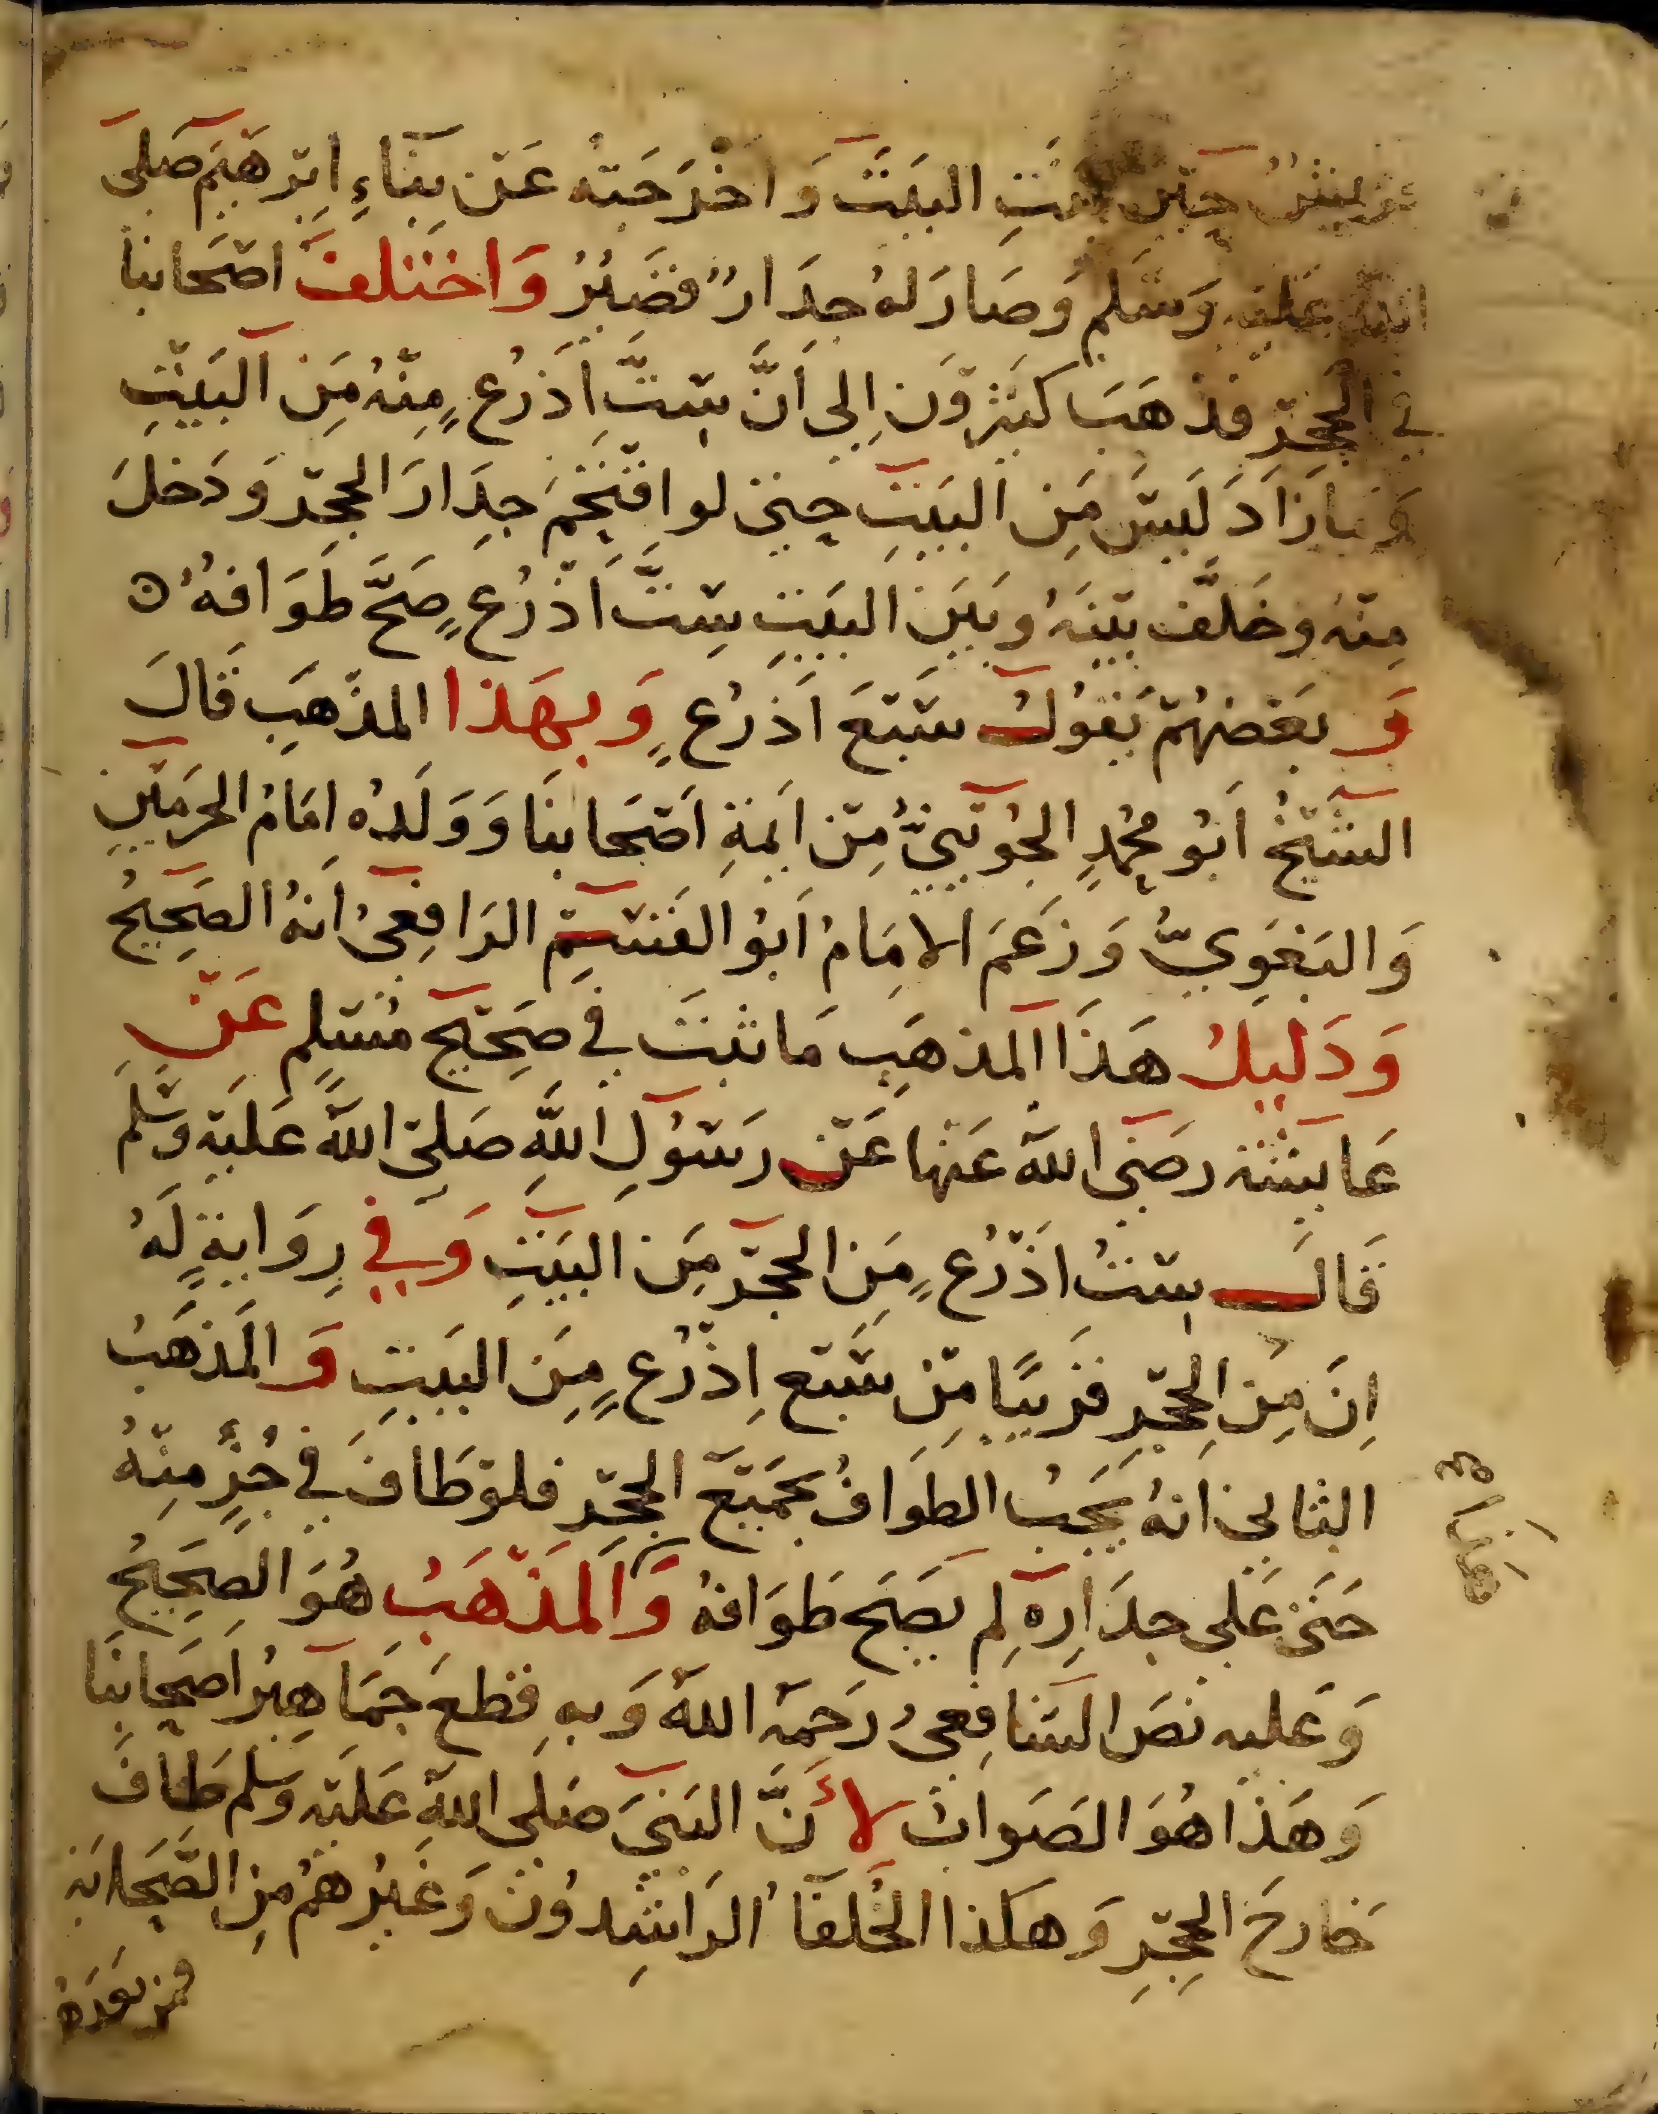 قريش حين بنت البيت وَاخْرَجَتْهُ عَن بِنَاءِ ابْرهيم صَلى
الله عليه وَسَلم وَصَارَ لهُ جدَارٌ قصَيرٌ وَاختلفَ اصْحَابنا
في الحِجْر فذهَبَ كثيرُون إِلى أَنَّ سِتَّ أذرُعٍ مِنْهُ مِنَ البَيْتِ
وَمَا زَادَ لَيسَ مِنَ البَيتِ حتى لو اقتَحَمَ جِدَارَ الحجْر وَدَخلَ
مِنْهُ وخَلَّف بيْنَهُ وبَيْنَ البَيتِ سِتَّ أذْرُعٍ صَحَّ طَوَافهُ ه
وَبعَضهُمْ يَقوُل سَبْعَ اَذرُعٍ وَبهَذا المذْهَبِ قَالَ
الشَّيْخُ أبُو محمدٍ الجُوَيْنيُّ مِنْ ايمَةِ اصْحَابنَا وَوَلَدُه امَامُ الحرَمَيْن
وَالبَغَوِيُّ وَزَعَمَ الامَامُ اَبوُ القسِم الرَافِعىُ انهُ الصَحِيحُ
وَدَليلُ هَذَا المذهَبِ مَا ثبَتَ في صَحِيْحِ مُسْلِم عَنْ
عَايشَة رضَى اللهُ عَنها عَنْ رسُولِ اللَّهِ صَلى اللهُ عَليْهِ وسَلم
قَالَ سِتُّ اذْرُعٍ مِنَ الحِجْر مِنَ البَيْتِ وَفي رِوَايَةٍ لَهُ
اِنَ مِنَ الحِجْرِ قرَيبًا مِنْ سَبْعِ اذْرُعٍ مِنَ البَيتِ وَالمَذهَبُ
الثانى انهُ يَجَبُ الطوَافُ بجَميْع الحِجْر فلوْ طَافَ في جُزءٍ مِنْهُ
حَتى عَلى جدَارِهِ لم يصَح طَوَافهُ وَالمَذْهَبُ هُوَ الصَحِيحُ
وَعليه نصَ الشافِعىُ رَحمَهُ اللهُ وَبهِ قطعَ جَمَاهِيرُ اصَحابنَا
وَهَذا هُوَ الصَوابُ لأَنَّ النبَيَ صَلى اللهُ عَليْهِ وَسَلم طَافَ
خارجَ الحِجْرِ وَهكذا الخُلفَاُ الرَاشِدوُن وَغَيرُهمُ مِنَ الصَّحَابَة
فمن بعَدَهُ